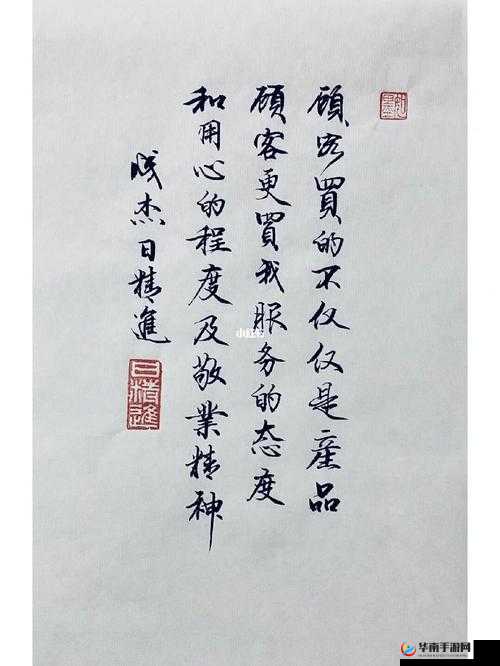 顾客買的不仅仅是産品
顾客更買我服务的态度
和用心的程度及敬業精神
成杰日精進
日精進
小红书
华南手游网